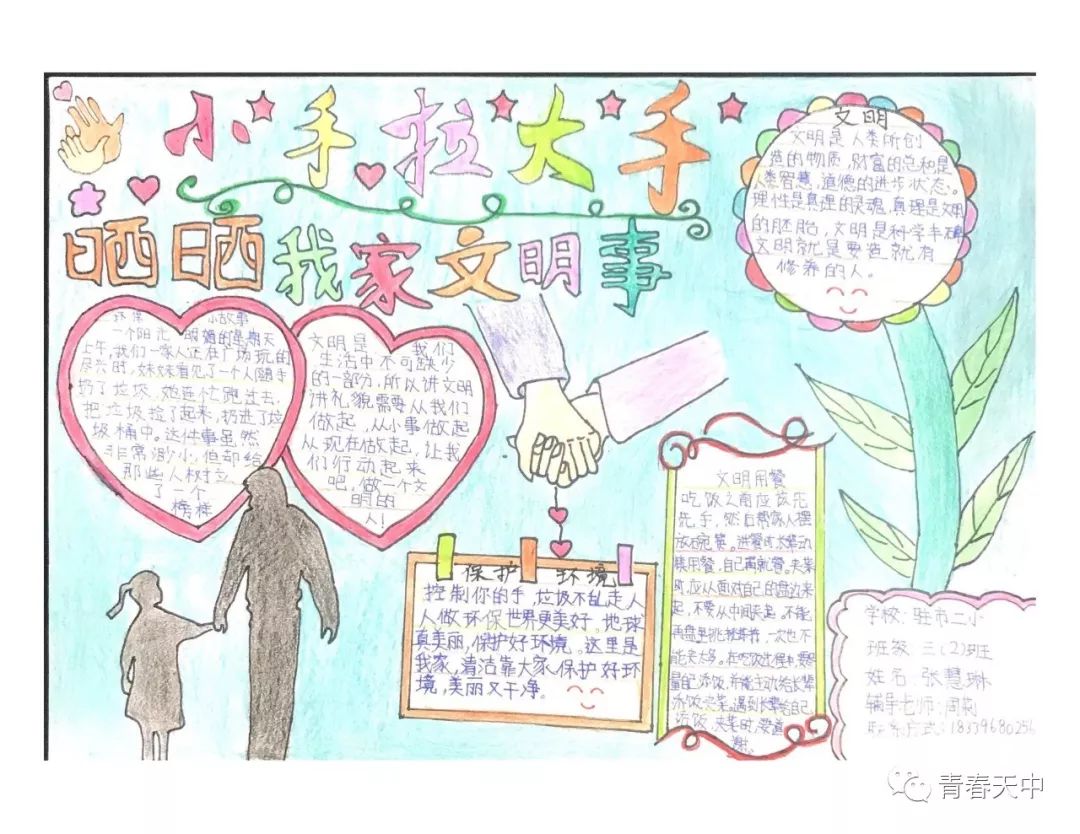 小手拉大手
晒晒我家文明事
文明
文明是人类所创
造的物质,财富的总和是
人类智慧,道德的进步状态。
理性是真理的灵魂,真理是文明
的胚胎,文明是科学丰碑
文明就是要造就有
修养的人。
环保 小故事
一个阳光明媚的星期天
上午,我们一家人正在广场玩的
尽兴时,妹妹看见了一个人随手
扔了垃圾,她连忙跑过去,
把垃圾捡了起来,扔进了垃
圾桶中。这件事虽然
非常渺小,但却给
那些人树立
了一个
榜样
文明是 我们
生活中不可缺少
的一部分,所以讲文明
讲礼貌需要从我们
做起,从小事做起
从现在做起,让我
们行动起来
吧,做一个文
明的
人!
保护 环境
控制你的手,垃圾不乱走人
人做环保世界更美好。地球
真美丽,保护好环境。这里是
我家,清洁靠大家、保护好环
境,美丽又干净。
文明用餐
吃饭之前应该先
洗手,然后帮家人摆
放碗筷。进餐时,长辈动
筷用餐,自己再就餐。夹菜
时,应从面对自己的盘边夹
起,不要从中间夹起,不能
再盘里挑
一次也不
能夹太多。在吃饭过程中,要尽
量自己添饭,并能主动给长辈
添饭、夹菜。遇到长辈给自己
添饭、夹菜时,要道
谢。
学校:驻市二小
班级:三(2)班
姓名:张慧琳
辅导老师:周莉
联系方式:18339680256
青春天中